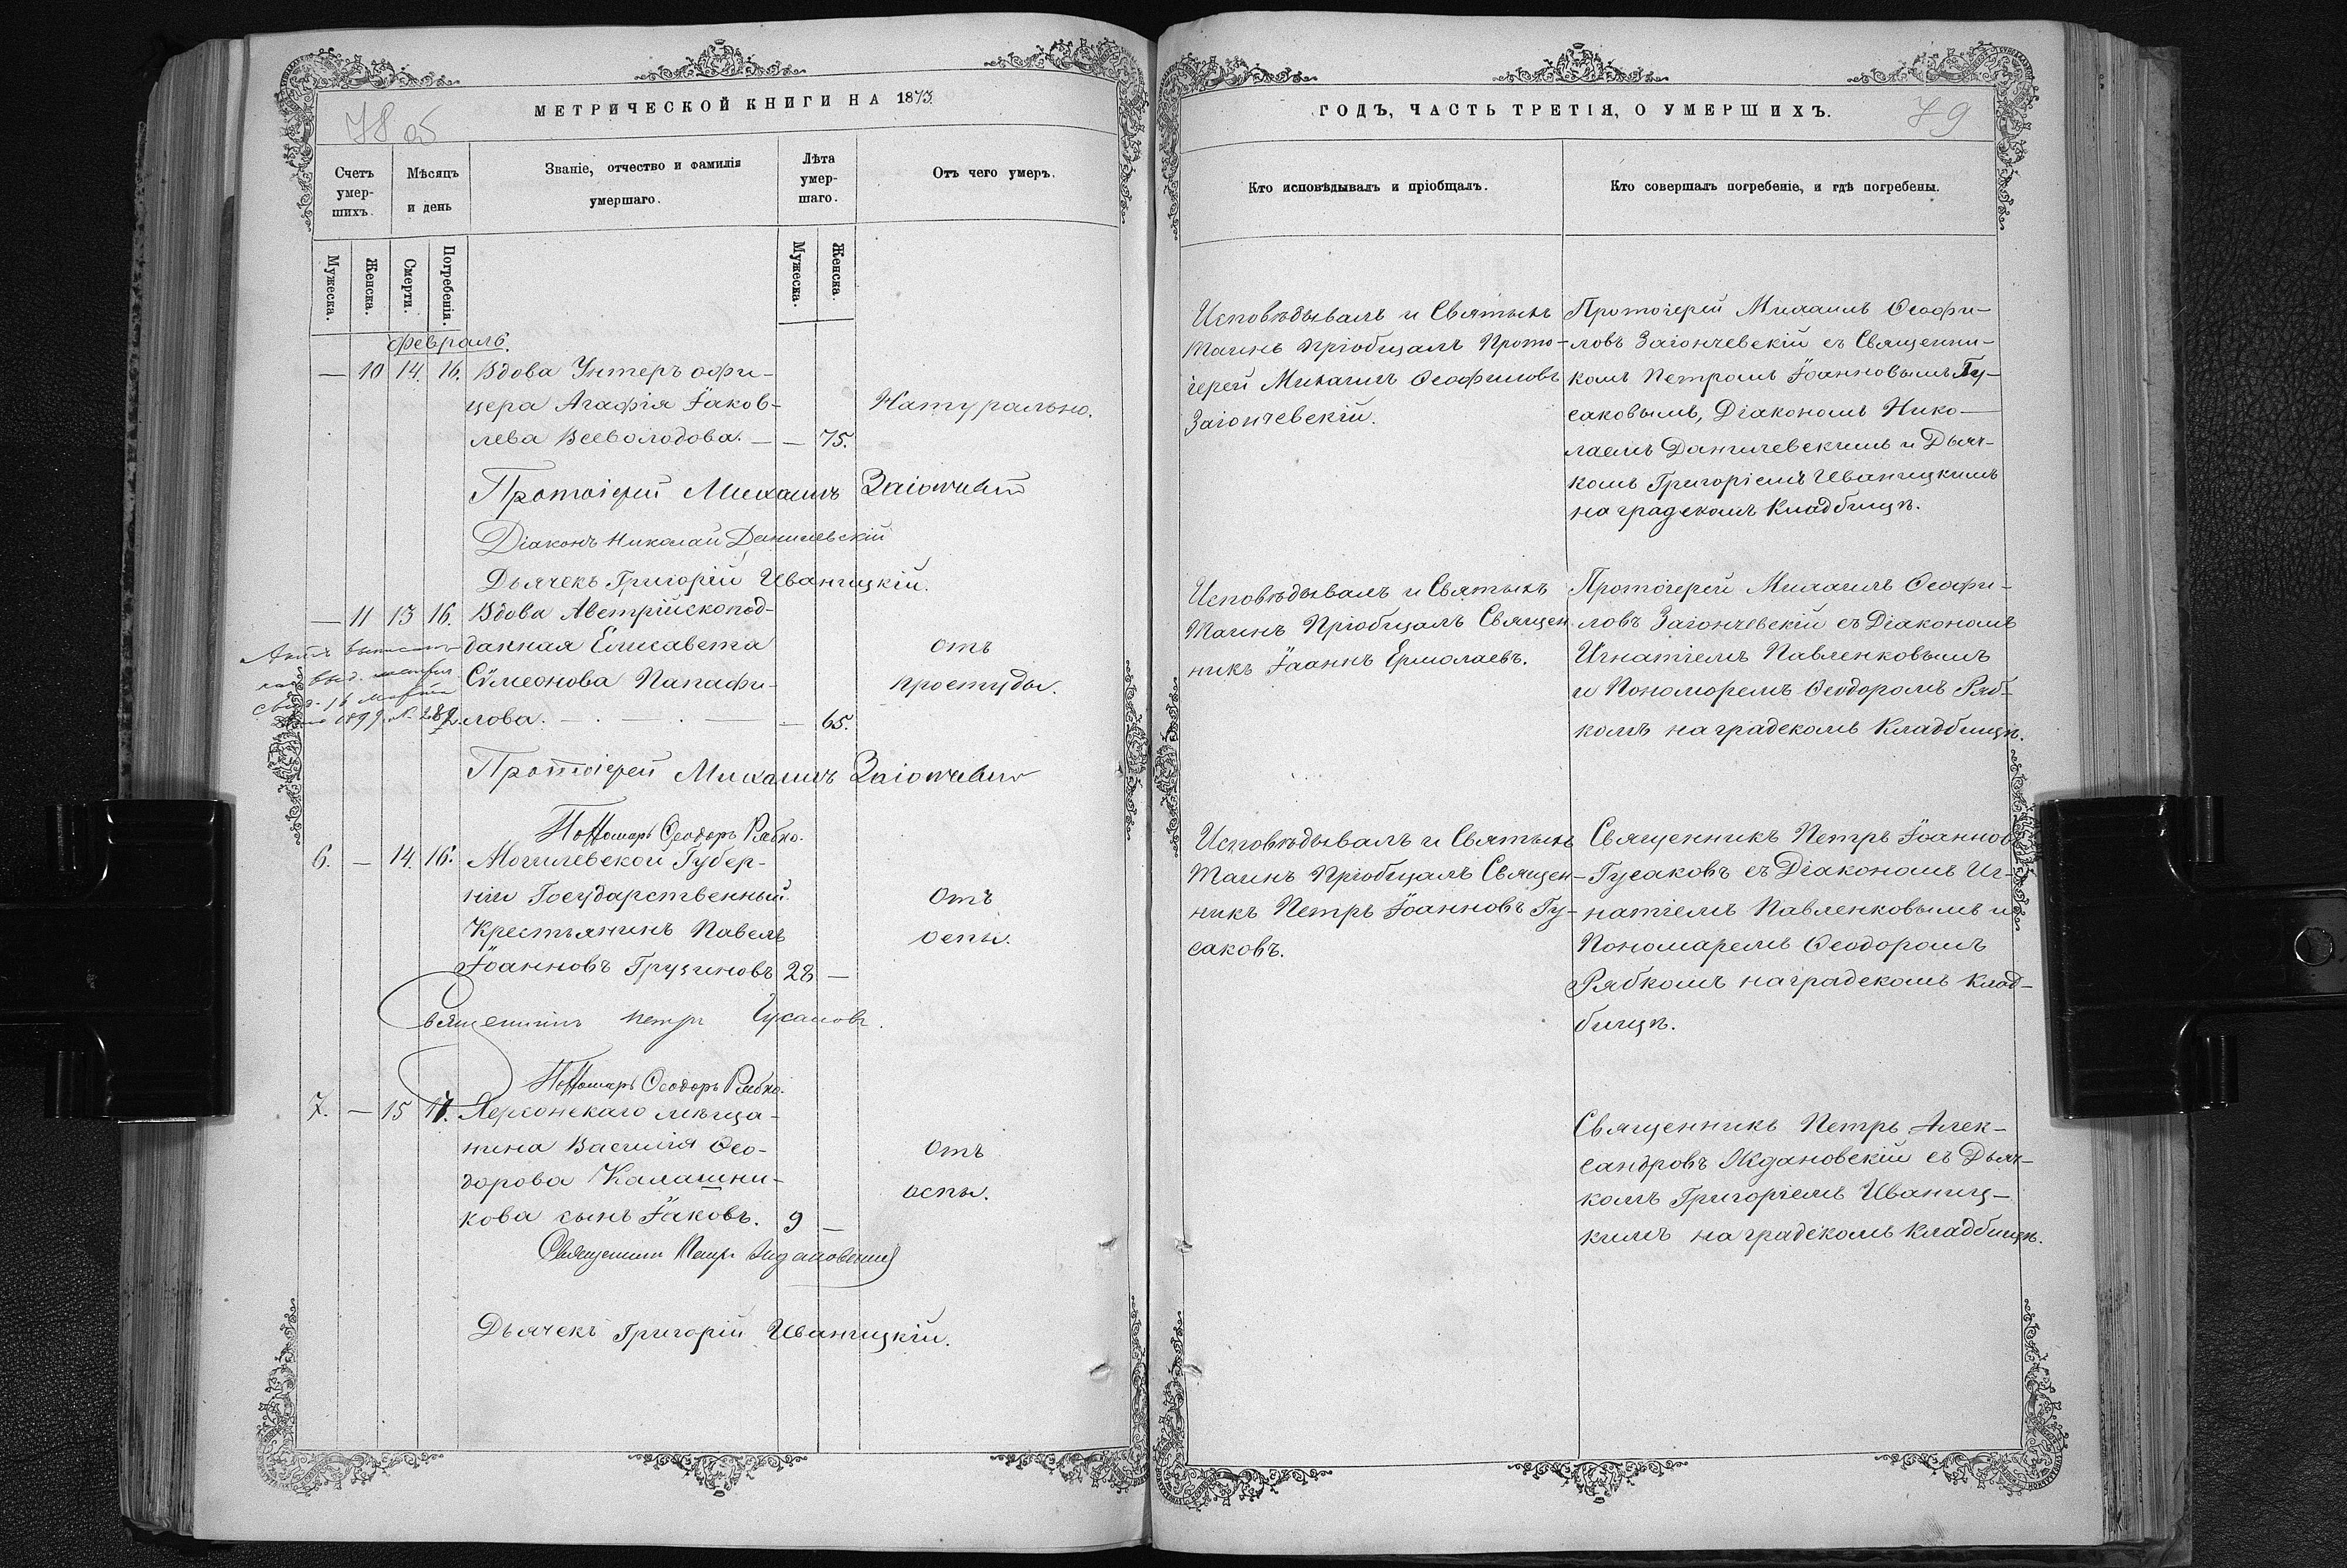 МЕТРИЧЕСКОЙ КНИГИ НА 1873
78 об
Счетъ умер-шихъ.
Мѣсяцъ и день
Званіе, отчество и фамилія умершаго.
Лѣта умер-шаго.
Отъ чего умеръ.
Мужеска.
Женска.
Смерти.
Погребенія.
Мужеска.
Женска.
Февраль.
— 10 14. 16. Вдова Унтеръ офи-
цера Агафія Іаков-
лева Всеволодова. — — 75.
Натурально.
Протоіерей Михаилъ
Діаконъ Николай Данилевскій
Дьячекъ Григорій Иваницкій.
— 11 13 16. Вдова Австрійскопод-
данная Елисавета
Сѵмеонова Папафи-
лова. — . — . — — 65.
отъ
простуды.
1899
Протоіерей Михаилъ
Пономарь Ѳеодоръ Рябко.
6. — 14. 16. Могилевской Губер-
ніи Государственный
Крестьянинъ Павелъ
Іоанновъ Грузиновъ 28 —
Отъ
оспы.
Священникъ Петръ Гусаковъ.
Пономарь Ѳеодоръ Рябко.
7. — 15 17. Херсонскаго мѣща-
нина Василія Ѳео-
дорова Калашни-
кова сынъ Іаковъ. 9 —
отъ
оспы.
Священникъ Петръ Ждановскій
Дьячекъ Григорій Иваницкій.
ГОДЪ, ЧАСТЬ ТРЕТІЯ, О УМЕРШИХЪ.
79
Кто исповѣдывалъ и пріобщалъ.
Кто совершалъ погребеніе, и гдѣ погребены.
Исповѣдывалъ и Святыхъ
Таинъ пріобщалъ Прото-
іерей Михаилъ Ѳеофиловъ
Заіончевскій.
Протоіерей Михаилъ Ѳеофи-
ловъ Заіончевскій съ Священни-
комъ Петромъ Іоанновымъ Гу-
саковымъ, Діакономъ Нико-
лаемъ Данилевскимъ и Дьяч-
комъ Григоріемъ Иваницкимъ
на градскомъ Кладбищѣ.
Исповѣдывалъ и Святыхъ
Таинъ Пріобщалъ Священ-
никъ Іоаннъ Ермолаевъ.
Протоіерей Михаилъ Ѳеофи-
ловъ Заіончевскій съ Діакономъ
Игнатіемъ Павленковымъ
и Пономоремъ Ѳеодоромъ Ряб-
комъ на градскомъ Кладбищѣ.
Исповѣдывалъ и Святыхъ
Таинъ Пріобщалъ Священ-
никъ Петръ Іоанновъ Гу-
саковъ.
Священникъ Петръ Іоанновъ
Гусаковъ съ Діакономъ Иг-
натіемъ Павленковымъ и
Пономаремъ Ѳеодоромъ
Рябкомъ на градскомъ Клад-
бищѣ.
Священникъ Петръ Алек-
сандровъ Ждановскій съ Дьяч-
комъ Григоріемъ Иваниц-
кимъ на градскомъ Кладбищѣ.